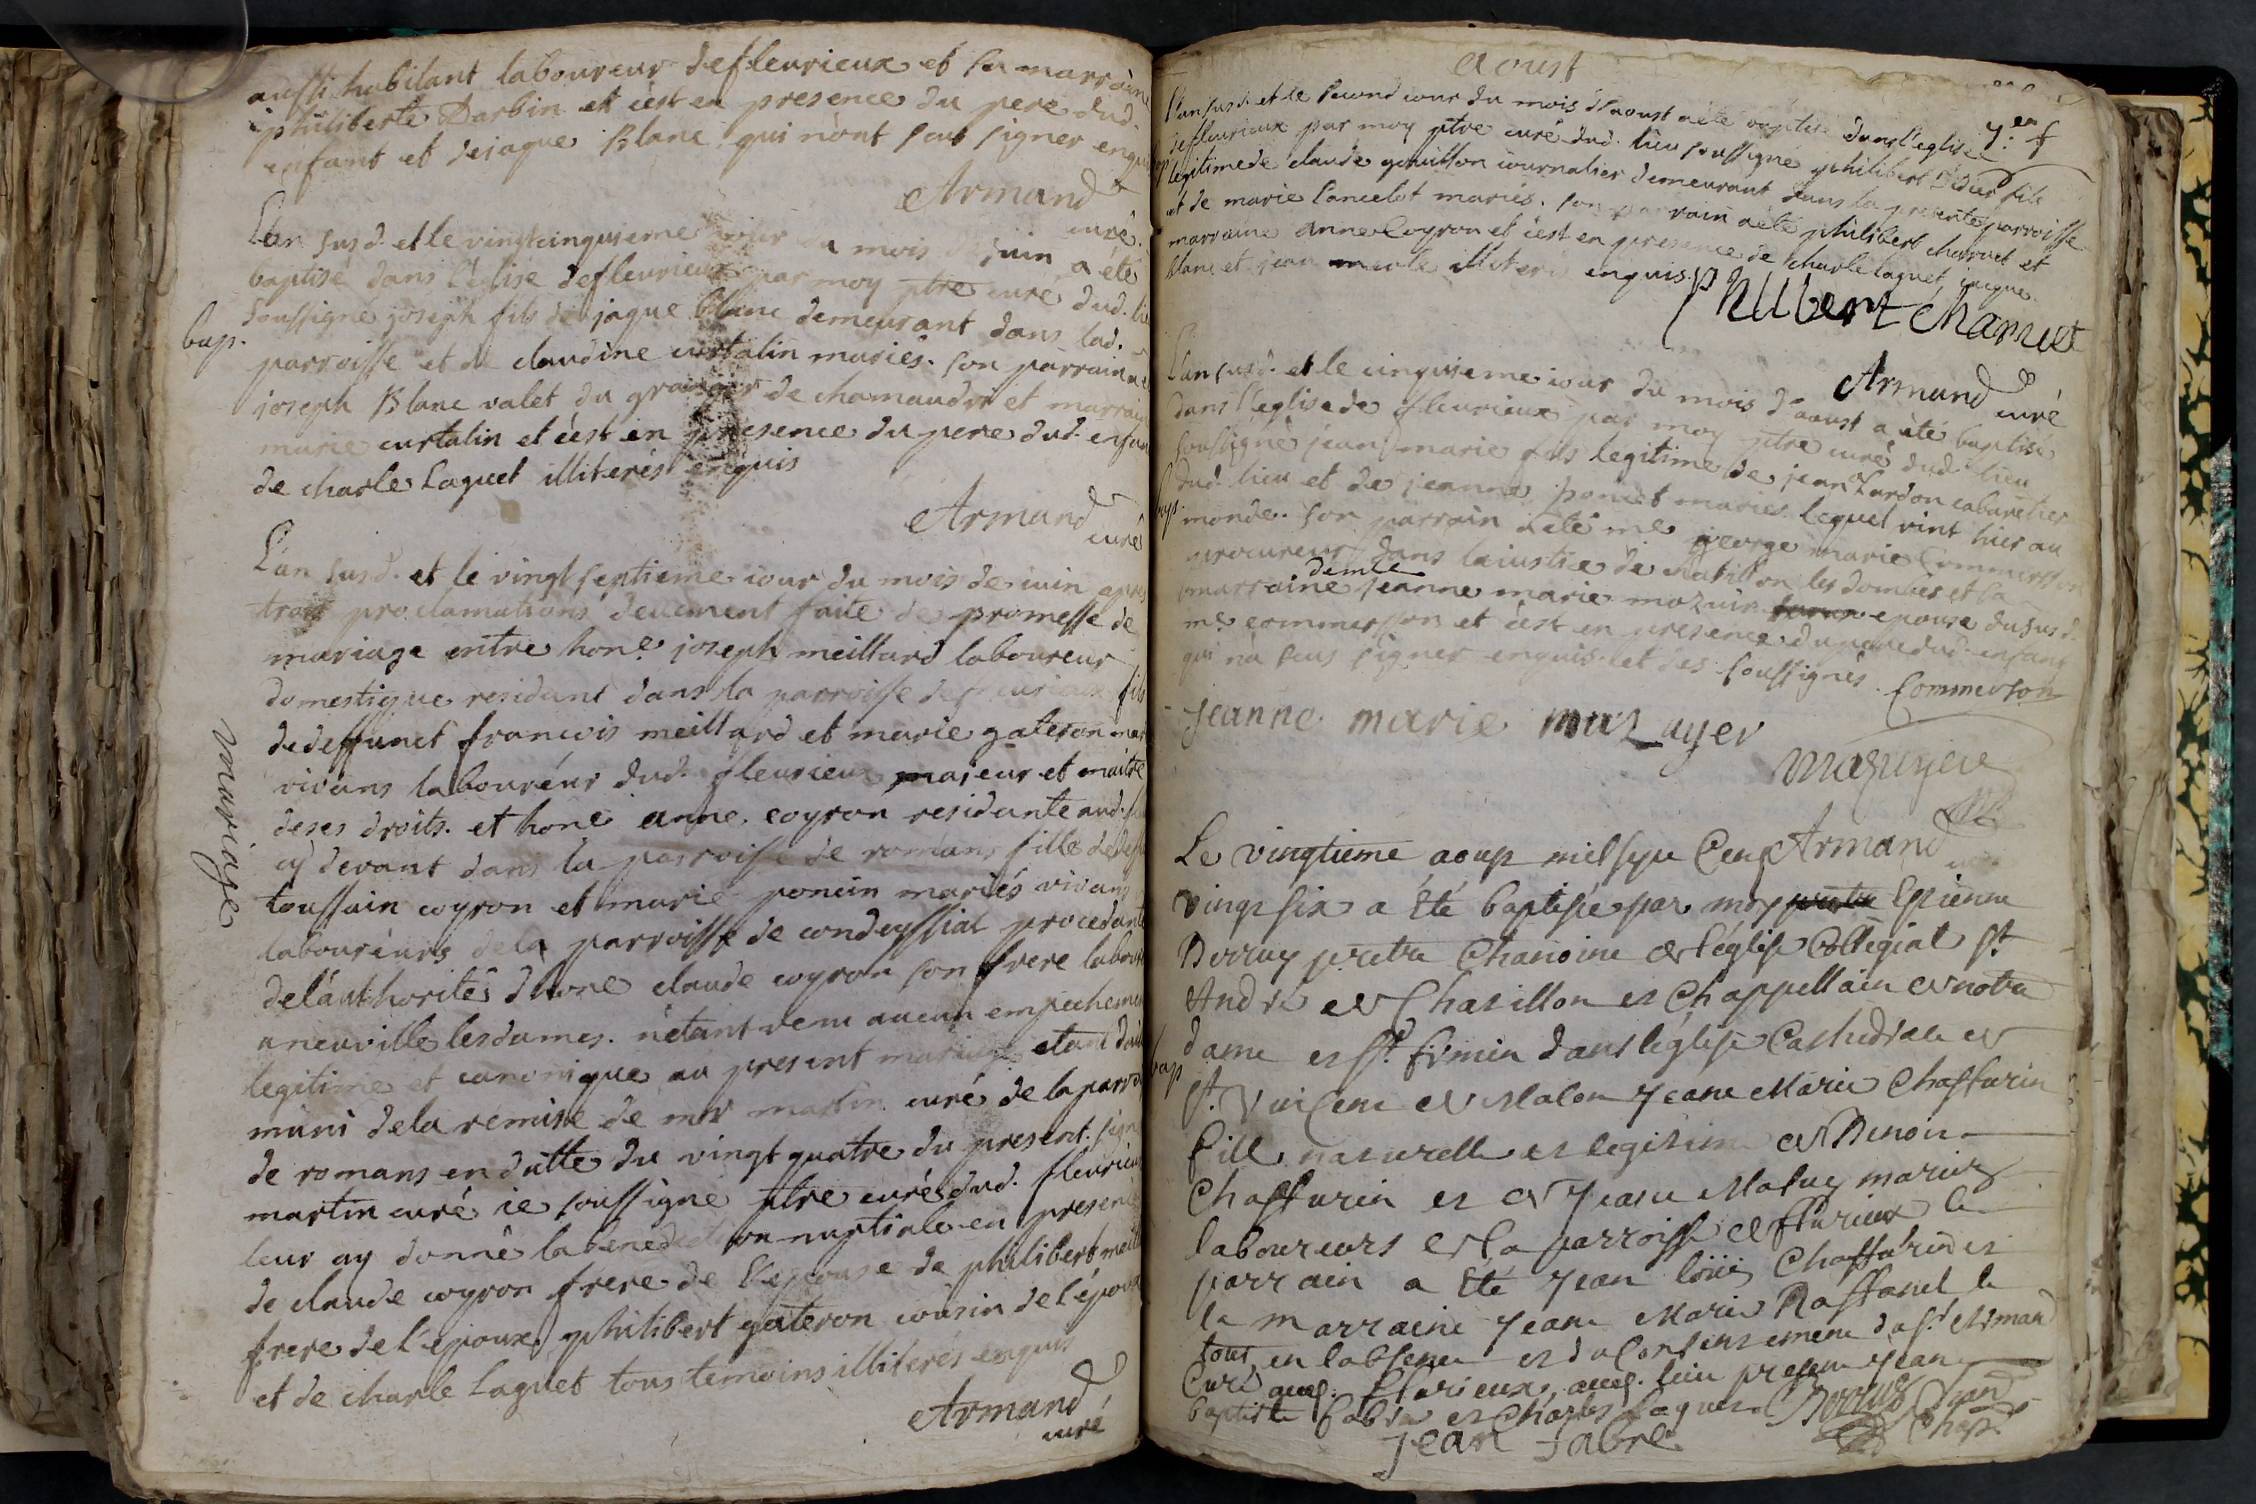 aussi habitant laboureur de fleurieux et sa marraine
philiberte Darbin et c'est en presence du pere dud.
enfant et de jaque Blanc qui n'ont seus signer enquis
Armand
curé.
L'an susd. et le vingtcinquieme jour du mois de juin a été
baptisé dans l'eglise de fleurieux par moy ptre curé dud. lieu
soussigné joseph fils de jaque blanc demeurant dans lad.
bap.
parroisse et de claudine curtalin mariés. son parrain a été
joseph Blanc valet du granger de chamaudr et marraine
marie curtalin et c'est en presence du pere dud. enfant
de charle Laquet illiterés enquis
Armand
curé
L'an susd. et le vingt septieme iour du mois de iuin apres
trois proclamations deuement faite de promesse de
mariage entre hone. joseph meillard laboureur
domestique residant dans la parroisse de fleurieux fils
de deffunct francois meillard et marie gateron mar
vivans laboureur dud. fleurieux majeur et maitre
de ses droits. et hone anne coyron residante aud.
cy devant dans la parroisse de romans fille de deff
mariage
toussain coyron et marie poncin mariés vivans
laboureurs de la parroisse de condeyssiat procedante
de l'authorité d'hone claude coyron son frere labour
a neuville les dames. n'etant venu aucun empechement
legitime et canonique au present mariage etant d'ail
muni de la remise de mr martin curé de la parro
de romans en datte du vingt quatre du present. signé
martin curé ie soussigné ptre curé dud. fleurieux
leur ay donné la benediction nuptiale en presence
de claude coyron frere de l'epouse de philibert meill
frere de l'epoux, philibert gateron cousin de l'époux
et de charle Laquet tous temoins illiterés enquis
Armand
curé
aoust
L'an susd. et le second iour du mois d'aoust a été baptisé dans l'eglise
de fleurieux par moy ptre curé dud. lieu soussigné philibert Didier fils
legitime de claude gouillon iournalier demeurant dans la presente parroisse
et de marie Lancelot mariés. son parrain a été philibert charvet et
marraine anne Coyron et c'est en presence de charle laquet, jacque
blanc et jean merle illiterés enquis.
Philibert charvet
Armand curé
L'an susd. et le cinquieme iour du mois d'aoust a été baptisé
dans l'eglise de fleurieux par moy ptre curé dud. lieu
soussigné jean marie fils legitime de jean Tardon cabaretier
dud. lieu et de jeanne poncet mariés lequel vint hier au
bap.
monde. son parrain a été me george marie Commerson
procureur dans la iustice de chatillon les dombes et la
demlle
marraine jeanne marie mazuir epouse du susd.
me commerson et c'est en presence du pere dud. enfant
qui n'a seus signer enquis. et des soussignés. Commerson
jeanne marie mazuyer
Mazuyer
Armand
Le vingtieme aoust mil sept Cent
vingt six a été baptisée par moy Estienne
Berruy pretre Chanoine de l'église Collegial st
André de Chatillon et Chappellain de notre
dame et st. firmin dans l'église Cathedrale de
bap
st. Vincent de Macon Jeane Marie Chaffurin
fille naturelle et legitime de Benoit
Chaffurin et de Jeane Maluy mariez
laboureurs de la parroisse de flurieux le
parrain a été Jean loüis Chaffurin et
la marraine Jeane Marie Raffanel le
tout en l'absence et du Consentement du sr. Armand
Curé aud. flurieux, aud. lieu present Jean
Baptiste fabre et Charles Laquet Berruy
jean fabre